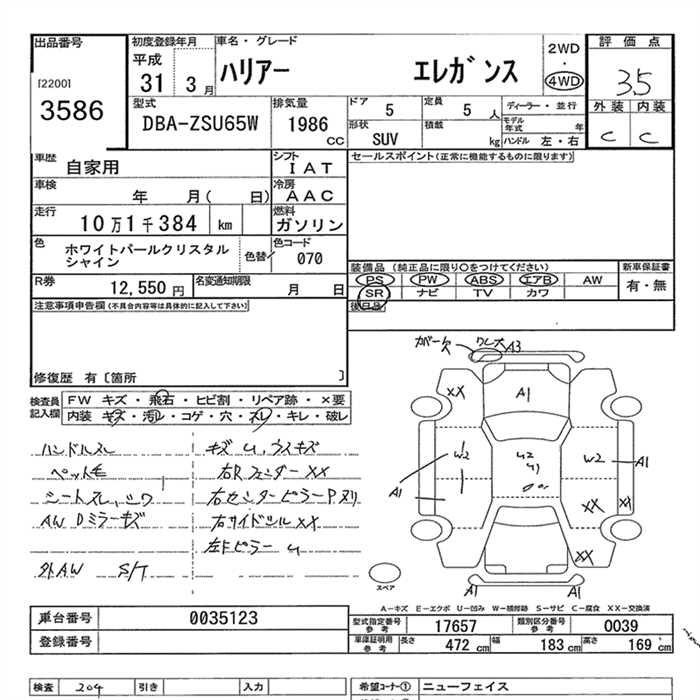 出品番号
[2200]
3586
初度登録年月
平成
31 3月
車名・グレード
ハリアー エレガンス
2WD
・
4WD
評価点
3.5
外装 内装
C C
型式
DBA-ZSU65W
排気量
1986
CC
ドア
5
定員
5 人
形状
SUV
積載
kg
ディーラー・並行
モデル年式 年
ハンドル 左・右
車歴
自家用
シフト
IAT
車検
年 月( 日)
冷房
AAC
走行
10万1千384 km
燃料
ガソリン
色
ホワイトパールクリスタル
シャイン
色替/
色コード
070
R券
12,550 円
名変通知期限
月 日
セールスポイント(正常に機能するものに限ります)
装備品(純正品に限り○をつけてください)
PS PW ABS エアB AW
SR ナビ TV カワ
新車保証書
有・無
後日品
注意事項申告欄(不具合内容等は具体的に記入して下さい)
修復歴 有〔箇所 〕
検査員
記入欄
FW キズ・飛石・ヒビ割・リペア跡・×要
内装 キズ・汚レ・コゲ・穴・スレ・キレ・破レ
ハンドルスレ
ペット毛
シートスレ、シワ
AW Dミラーキズ
外AW S/T
キズ U, ウスキズ
右Rフェンダー XX
右センターピラーP ヌリ
右サイドシル XX
左Fピラー U
ガバース
ワレ大 A3
XX
A1
W2
U2
U1
W2
A1
A1
XX
XX
XX
A1
A1
スペア
A-キズ E-エクボ U-凹み W-補修跡 S-サビ C-腐食 XX-交換済
車台番号
0035123
登録番号
型式指定番号
参考
17657
類別区分番号
参考
0039
車庫証明用
参考
長さ 472 cm 幅 183 cm 高さ 169 cm
検査 204 引き 入力
希望コーナー① ニューフェイス